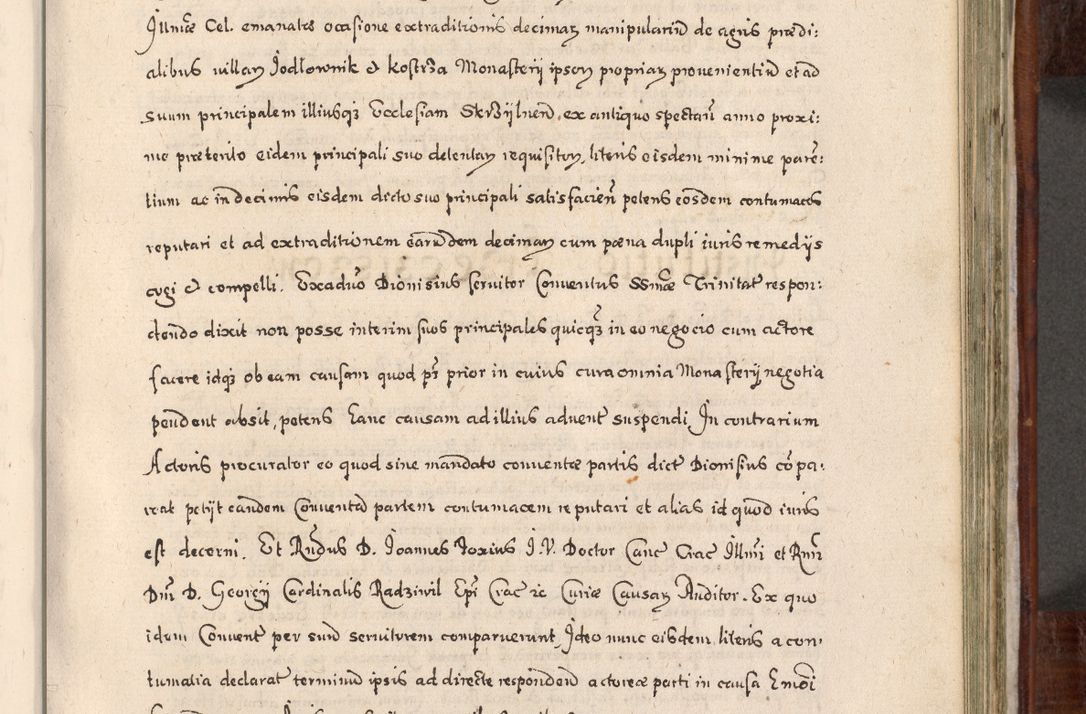 Illmæ Cel. emanates ocasione extraditionis decimaꝝ manipulariũ de agris prædi:
alibus villaꝝ Jodłownik et Kostrza Monasterij ipsoꝝ propriaꝝ provenientiũ et ad
suum principalem illiusqꝫ Ecclesiam Skrzÿlnen̄, ex antiquo spectan̄ anno proxi:
me præterito eidem principali suo detentaꝝ requisitoꝝ, literis eisdem minime paren̄:
tium ac in decimis eisdem dicto suo principali satisfacien̄ petens eosdem contumaces
reputari et ad extraditionem earũdem decimaꝝ cum pæna dupli iuris remedijs
cogi et compelli. Exaduo Dionisius servitor Conventus SSmæ Trinitat̄ respon:
dendo dixit non posse interim suos principales quicqꝫ in eo negocio cum actore
facere idqꝫ ob eam causam quod pr̄ prior in cuius cura omnia Monasterij negotia
pendent absit, petens hanc causam ad illius advent̄ suspendi. In contrarium
Actoris procurator eo quod sine mandato conventæ partis dict̄ Dionisius cōpa:
reat petijt eandem Conventã partem contumacem reputari et alias id quod iuris
est decerni. Et Rñdus D. Joannes Foxius J.V. Doctor Canc̄ Crac̄ Illm̄i et Rm̄i
Dn̄i D. Georgij Cardinalis Radziwil Ep̄i Crac̄ ꝛc Curiæ Causaꝝ Auditor. Ex quo
idem Convent̄ per suũ servitorem comparuerunt, Ideo nunc eisdem literis a con:
tumatia declarat̄ terminũ ipsis ad directe respondendũ actoreæ parti in causa hmōi